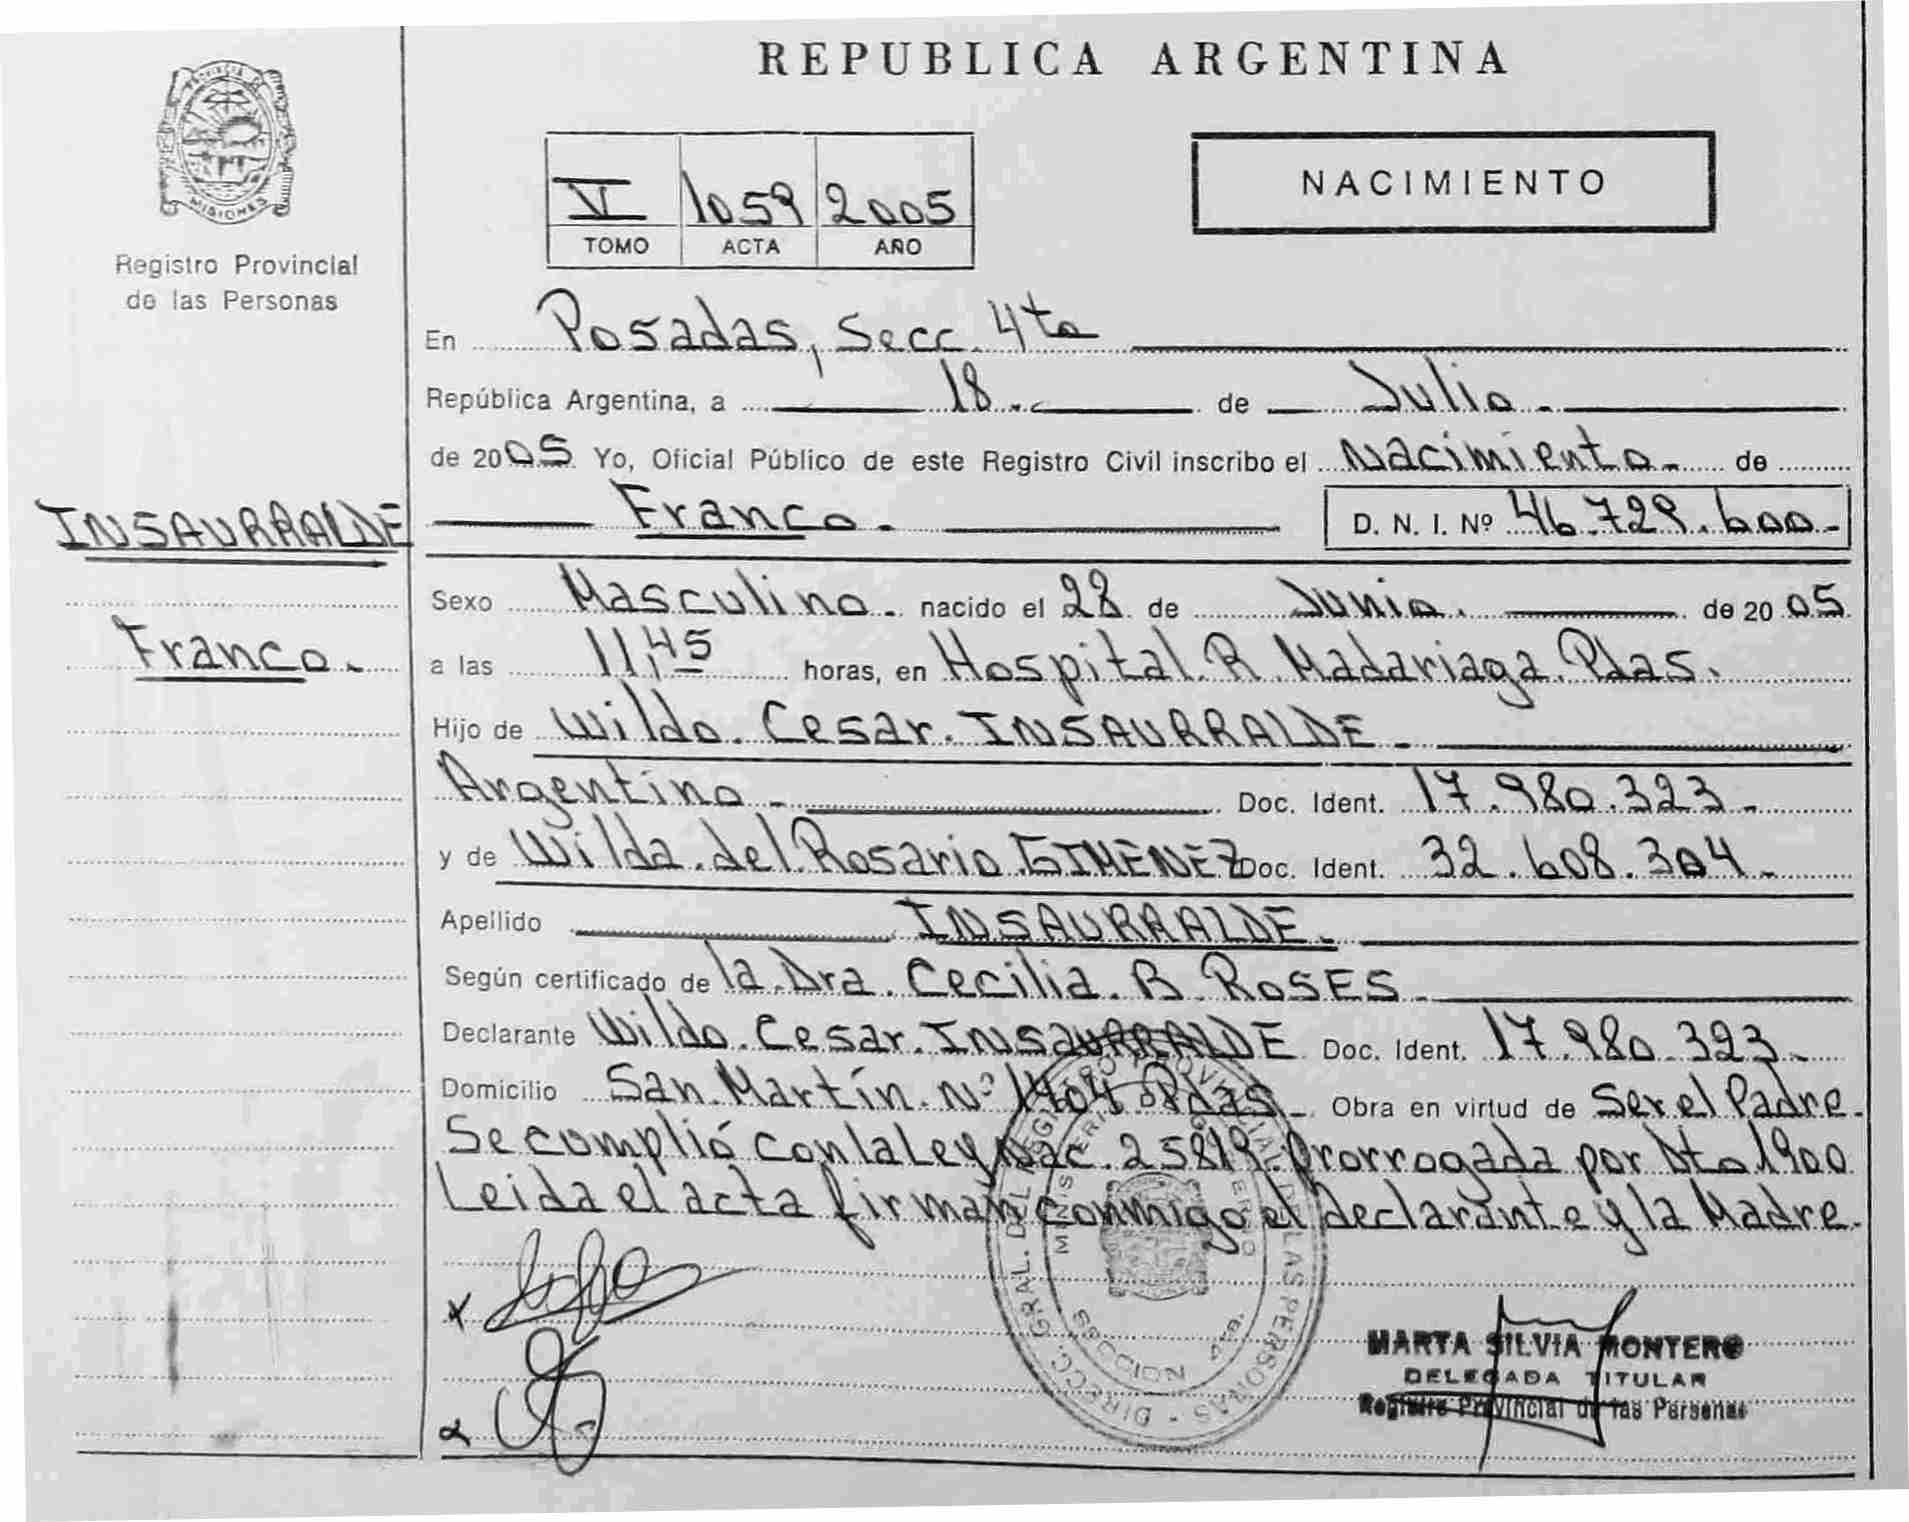 REPUBLICA ARGENTINA
PROVINCIA DE
MISIONES
Registro Provincial
de las Personas
VI 1059 2005
TOMO ACTA AÑO
NACIMIENTO
En Posadas, Secc. 4ta
República Argentina, a 18 de Julio
de 2005 Yo, Oficial Público de este Registro Civil inscribo el Nacimiento de
INSAURRALDE
Franco. D. N. I. Nº 46.729.600
Sexo Masculino nacido el 28 de Junio de 2005
Franco.
a las 11,45 horas, en Hospital R. Madariaga. Pdas.
Hijo de Wildo. Cesar. INSAURRALDE
Argentino Doc. Ident. 17.980.323
y de Wilda del Rosario GIMENEZ Doc. Ident. 32.608.304
Apellido INSAURRALDE
Según certificado de la Dra. Cecilia. B. ROSES
Declarante Wildo. Cesar. INSAURRALDE Doc. Ident. 17.980.323
Domicilio San Martín Nº 1404 Pdas Obra en virtud de Ser el Padre
Se cumplió con la Ley Nac. 25819. Prorrogada por Dto 1900
Leida el acta firman conmigo el declarante y la Madre.
DIRECC. GRAL. DEL REGISTRO PROVINCIAL DE LAS PERSONAS
SECCION 4ta
MARTA SILVIA MONTERO
DELEGADA TITULAR
Registro Provincial de las Personas